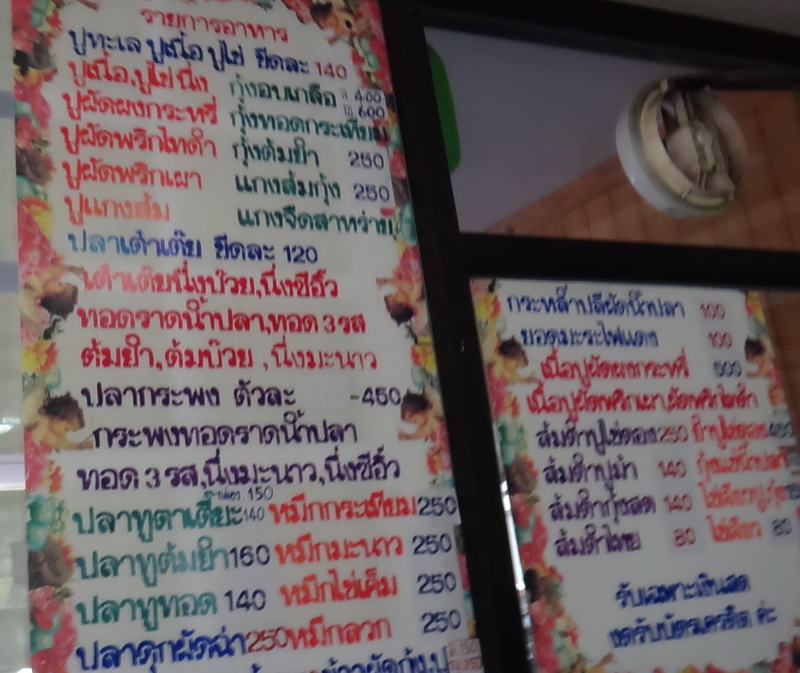 รายการอาหาร
ปูทะเล ปูเนื้อ ปูไข่ ขีดละ 140
ปูเนื้อ,ปูไข่นึ่ง กุ้งอบเกลือ 400 600
ปูผัดผงกระหรี่ กุ้งทอดกระเทียม
ปูผัดพริกไทดำ กุ้งต้มยำ 250
ปูผัดพริกเผา แกงส้มกุ้ง 250
ปูแกงส้ม แกงจืดสาหร่าย
ปลาเต๋าเต้ย ขีดละ 120
เต๋าเต้ยนึ่งบ๊วย,นึ่งซีอิ้ว
ทอดราดน้ำปลา,ทอด 3 รส
ต้มยำ,ต้มบ๊วย ,นึ่งมะนาว
ปลากระพง ตัวละ -450
กระพงทอดราดน้ำปลา
ทอด 3 รส,นึ่งมะนาว,นึ่งซีอิ้ว
ปลาทูตาเดี๊ยะ 140 150 หมึกกระเทียม 250
ปลาทูต้มยำ 160 หมึกมะนาว 250
ปลาทูทอด 140 หมึกไข่เค็ม 250
ปลาดุกผัดฉ่า 250 หมึกลวก 250
ข้าวผัดกุ้ง,ปู 150 250
กระหล่ำปลีผัดน้ำปลา 100
ยอดมะระไฟแดง 100
เนื้อปูผัดผงกระหรี่ 500
เนื้อปูผัดพริกเผา,ผัดพริกไทดำ
ส้มตำปูไข่ดอง 250 ยำปูไข่ดอง
ส้มตำปูม้า 140 กุ้งแช่น้ำปลา
ส้มตำกุ้งสด 140 ไข่เจียวปู,กุ้ง
ส้มตำไทย 80 ไข่เจียว 80
รับเฉพาะเงินสด
งดรับบัตรเครดิต ค่ะ